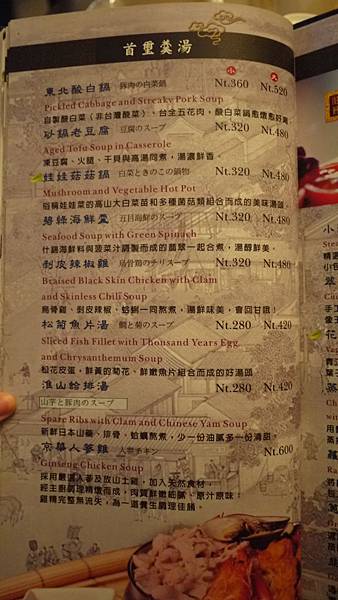 首璽羹湯
小 大
東北酸白鍋 豚肉の白菜鍋 Nt.360 Nt.520
Pickled Cabbage and Streaky Pork Soup
自製酸白菜（非台灣酸菜），台全五花肉，酸白菜鍋愈燉愈好喝
砂鍋老豆腐 豆腐のスープ Nt.320 Nt.480
Aged Tofu Soup in Casserole
凍豆腐、火腿、干貝與高湯同煮，湯濃鮮香
娃娃菇菇鍋 白菜ときのこの鍋物 Nt.320 Nt.480
Mushroom and Vegetable Hot Pot
俗稱娃娃菜的高山大白菜苗和多種菌菇類組合而成的美味湯頭
碧綠海鮮羹 五目海鮮のスープ Nt.320 Nt.480
Seafood Soup with Green Spinach
什錦海鮮料與菠菜汁調製而成的翡翠一起合煮，湯醇鮮美
剝皮辣椒雞 烏骨鶏のチリスープ Nt.320 Nt.480
Braised Black Skin Chicken with Clam
and Skinless Chili Soup
烏骨雞、剝皮辣椒、蛤蜊一同熬煮，湯鮮味美，會回甘哦！
松菊魚片湯 鯛と菊のスープ Nt.280 Nt.420
Sliced Fish Fillet with Thousand Years Egg
and Chrysanthemum Soup
松花皮蛋，鮮黃的菊花、鮮嫩魚片組合而成的好湯頭
淮山蛤排湯 Nt.280 Nt.420
山芋と豚肉のスープ
Spare Ribs with Clam and Chinese Yam Soup
新鮮日本山藥、排骨、蛤蠣熬煮，少一份油膩多一份清甜
京華人蔘雞 人參チキン Nt.600
Ginseng Chicken Soup
採用嚴選人蔘及放山土雞，加入天然食材，
經主廚調理精燉而成，肉質鮮嫩細膩、原汁原味！
雞精完整無流失，為一道養生調理佳餚。